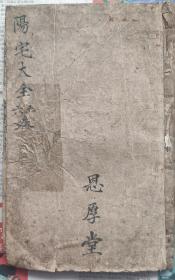 陽宅大全
恩厚堂